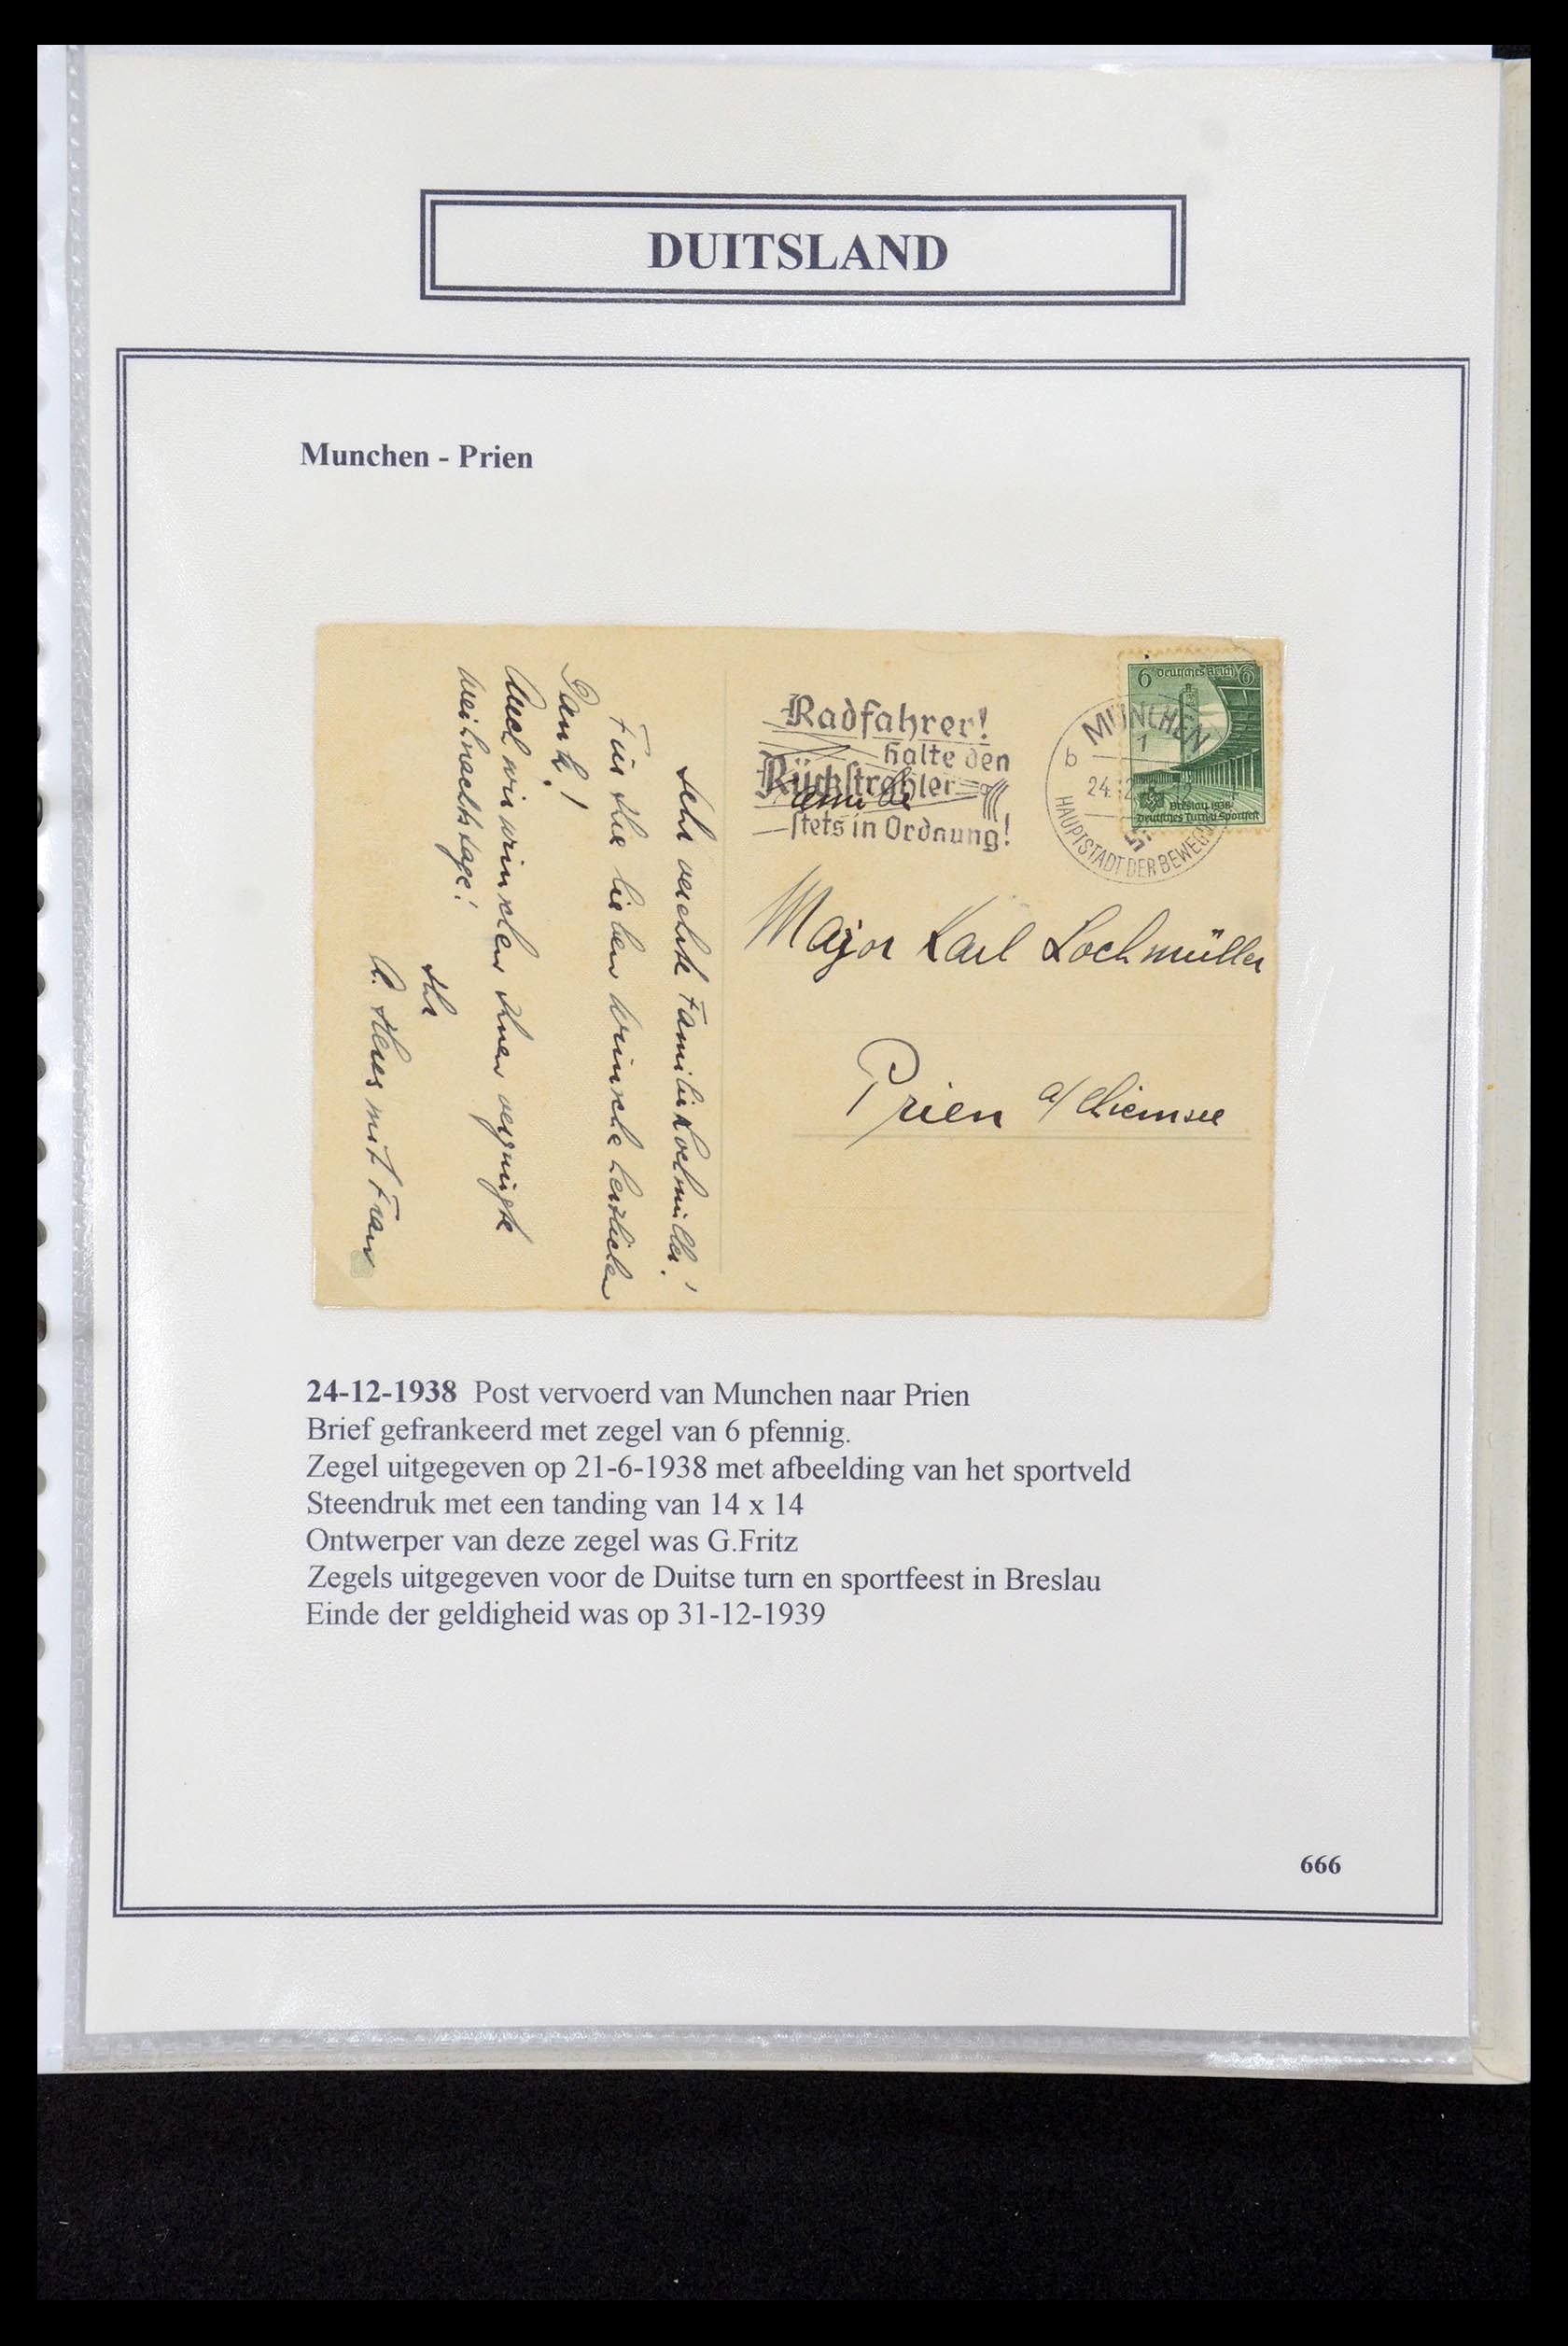 DUITSLAND
Munchen - Prien
6 Deutsches Reich 6
Breslau 1938
Deutsches Turn-u. Sportfest
MÜNCHEN
1
b
24.12
HAUPTSTADT DER BEWEG
Radfahrer!
halte den
Rückstrahler
stets in Ordnung!
Familie
Major Karl Lochmüller
Prien a/Chiemsee
Sehr verehrte Familie Lochmüller!
Für Ihre lieben Wünsche herzlichen
Dank!
Auch wir wünschen Ihnen vergnügte
Weihnachtstage!
Ihr
mit Frau
24-12-1938 Post vervoerd van Munchen naar Prien
Brief gefrankeerd met zegel van 6 pfennig.
Zegel uitgegeven op 21-6-1938 met afbeelding van het sportveld
Steendruk met een tanding van 14 x 14
Ontwerper van deze zegel was G.Fritz
Zegels uitgegeven voor de Duitse turn en sportfeest in Breslau
Einde der geldigheid was op 31-12-1939
666